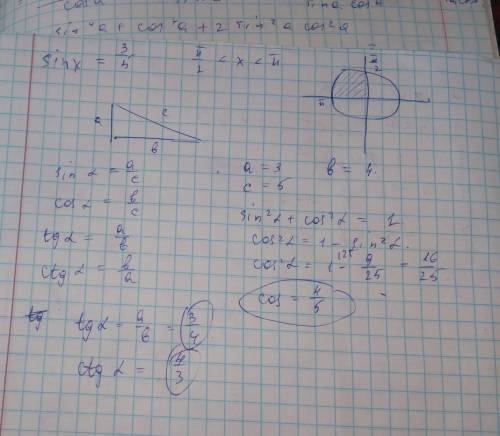 sin⁴a + cos⁴a + 2 sin²a cos²a
sin x = 3/5   π/2 < x < π
π/2
π
a c
b
sin α = a/c
cos α = b/c
tg α = a/b
ctg α = b/a
a = 3   b = 4.
c = 5
sin²α + cos²α = 1
cos²α = 1 - sin²α.
cos²α = 1 - 9/25 = 16/25
cos = 4/5
tg α = a/b = 3/4
ctg α = 4/3